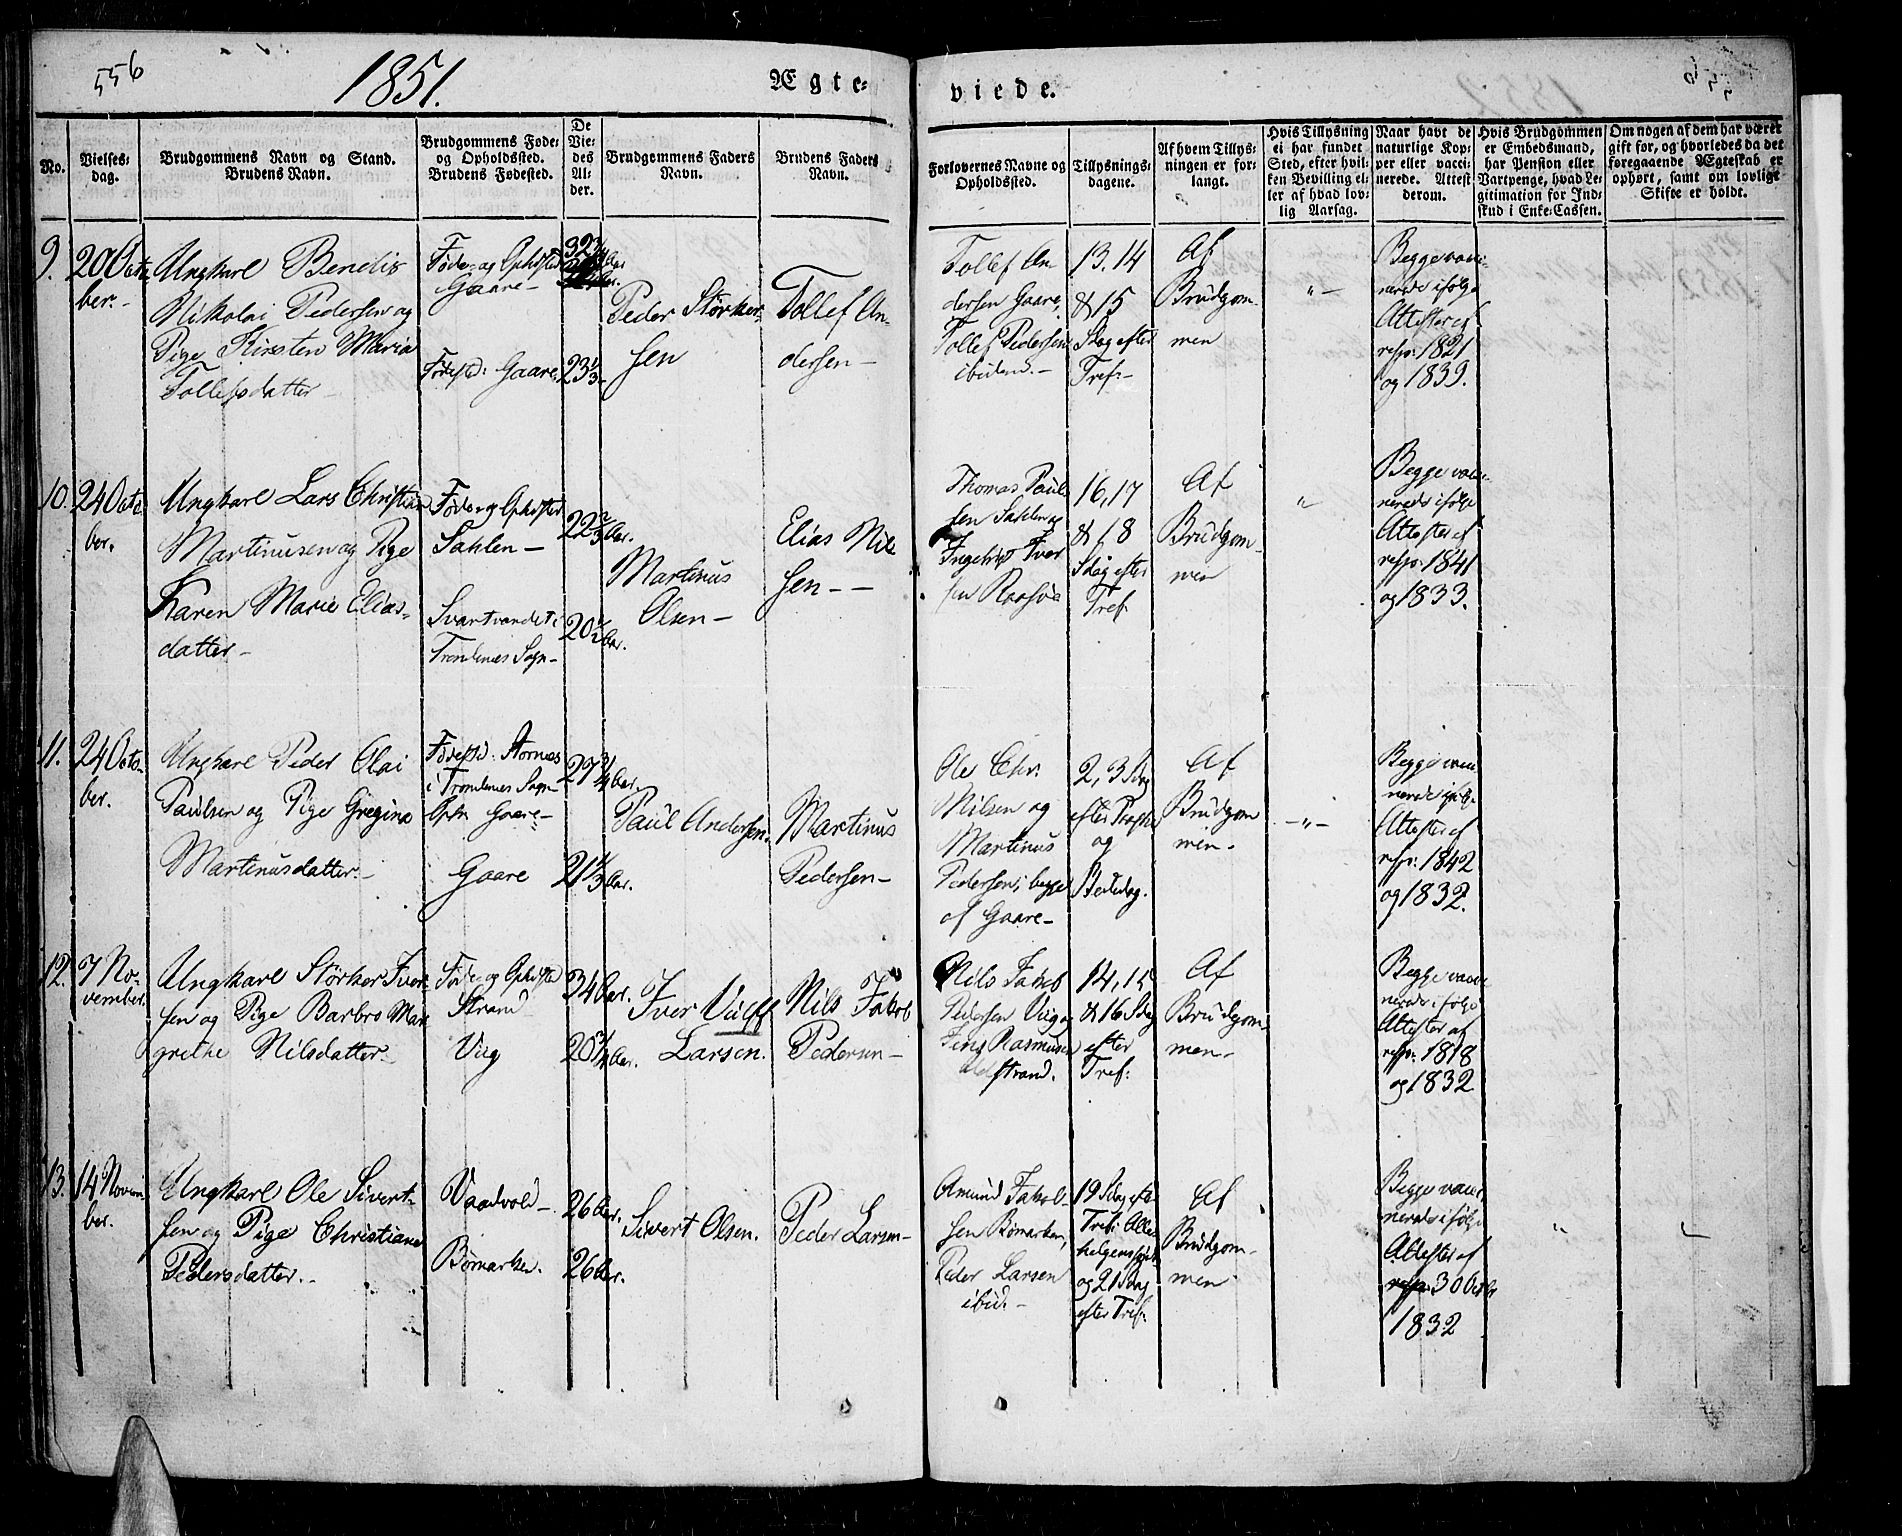 556
1851.
Ægte-
viede.
No.
Vielses-
dag.
Brudgommens Navn og Stand.
Brudens Navn.
Brudgommens Føde-
og Opholdssted.
Brudens Fødested.
De
Vie-
des
Al-
der.
Brudgommens Faders
Navn.
Brudens Faders
Navn.
Forlovernes Navne og
Opholdssted.
Tillysnings-
dagene.
Af hvem Tillys-
ningen er for-
langt.
Hvis Tillysning
ei har fundet
Sted, efter hvil-
ken Bevilling el-
ler af hvad lov-
lig Aarsag.
Naar havt de
naturlige Kop-
per eller vacci-
nerede. Attest
derom.
Hvis Brudgommen
er Embedsmand,
har Pension eller
Vartpenge, hvad Le-
gitimation for Ind-
skud i Enke-Cassen.
Om nogen af dem har været
gift før, og hvorledes da det
foregaaende Ægteskab er
ophørt, samt om lovlige
Skifte er holdt.
9.
20 Octo-
ber.
Ungkarl Bendis
Nikolai Pedersen og
Pige Kirsten Maria
Tollefsdatter
Føde- og Opholdssted
Gaare
Fødested: Gaare
32
23 1/3
Peder Størker-
sen
Tollef An-
dersen
Tollef An-
dersen Gaare,
Tollef Pedersen
ibidend.
13. 14
& 15
Sdag efter
Tref:
Af
Brudgom-
men
"
Begge vacci-
nerede ifølge
Attester af
resp: 1821
og 1839.
10.
24 Octo-
ber.
Ungkarl Lars Christian
Martinusen og Pige
Karen Marie Elias-
datter
Føde- og Opholdssted
Sahlen
Svartvandet i
Trondenes Sogn
22 2/3 Aar.
20 1/2 Aar.
Martinus
Olsen
Elias Nil-
sen
Thomas Paul-
sen Sahlen og
Ingebrigt Iver-
sen
16, 17
& 18
Sdag efter
Tref.
Af
Brudgom-
men
"
Begge vacci-
nerede ifølge
Attester af
resp: 1841
og 1833.
11.
24 Octo-
ber.
Ungkarl Peder Olai
Paulsen og Pige Gregine
Martinusdatter
Fødested: Stornes
i Trondenes Sogn
Gaare
Gaare
27 3/4 Aar.
21 1/3 Aar.
Paul Andersen
Martinus
Pedersen
Ole Chr.
Nilsen og
Martinus
Pedersen, begge
af Gaare
2, 3 Sdag
efter
og
Bededag.
Af
Brudgom-
men.
"
Begge vacci-
nerede ifølge
Attester af
resp: 1842
og 1832.
12.
7 No-
vember.
Ungkarl Størker Iver-
sen og Pige Barbro Mar-
grethe Nilsdatter
Føde- og Opholdssted
Strand
Viig
34 Aar.
20 3/4 Aar.
Iver
Larsen.
Nils Jakob
Pedersen
Nils Jakob
Pedersen Viig og
Jens Rasmusen
strand.
14, 15
& 16 Sdag
efter
Tref:
Af
Brudgom-
men.
Begge vacci-
nerede ifølge
Attester af
resp: 1818
og 1832
13.
14 Novem-
ber.
Ungkarl Ole Sivert-
sen og Pige Christiane
Pedersdatter.
Vaadvold
Bømarken.
26 Aar.
26 Aar.
Sivert Olsen.
Peder Larsen
Amund Jakob-
sen Bømarken,
Peder Larsen
ibid.
19 Sdag efter
Tref: Alle-
helgens
og 21 Sdag
efter Tref:
Af
Brudgom-
men
Begge vacci-
nerede ifølge
Attester af
30 Octbr
1832
"